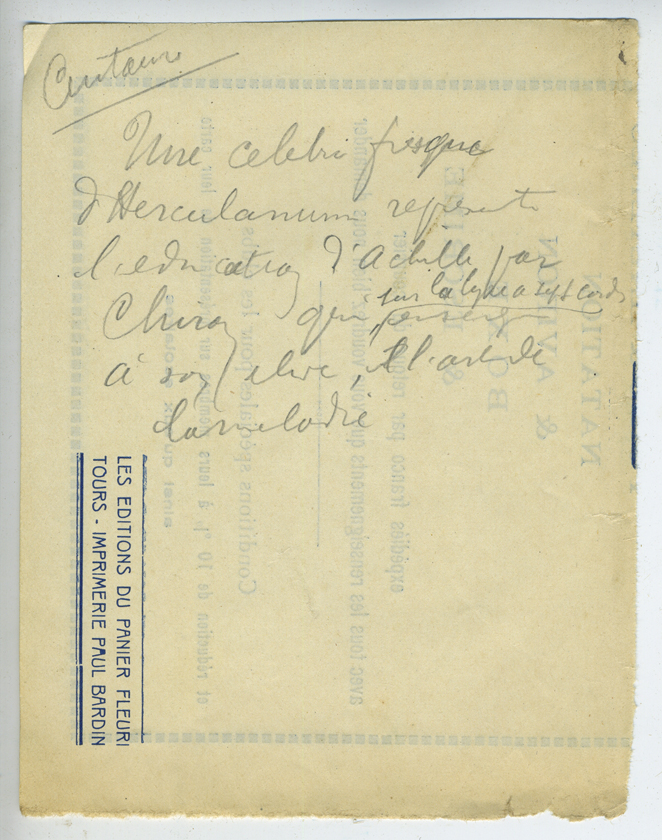 Centaure
Une celebre fresque
d'Herculanum represente
l'education d'Achille par
Chiron qui enseigne
sur la lyre a sept cordes
à son eleve, l'art de
la melodie
LES EDITIONS DU PANIER FLEURI
TOURS - IMPRIMERIE PAUL BARDIN